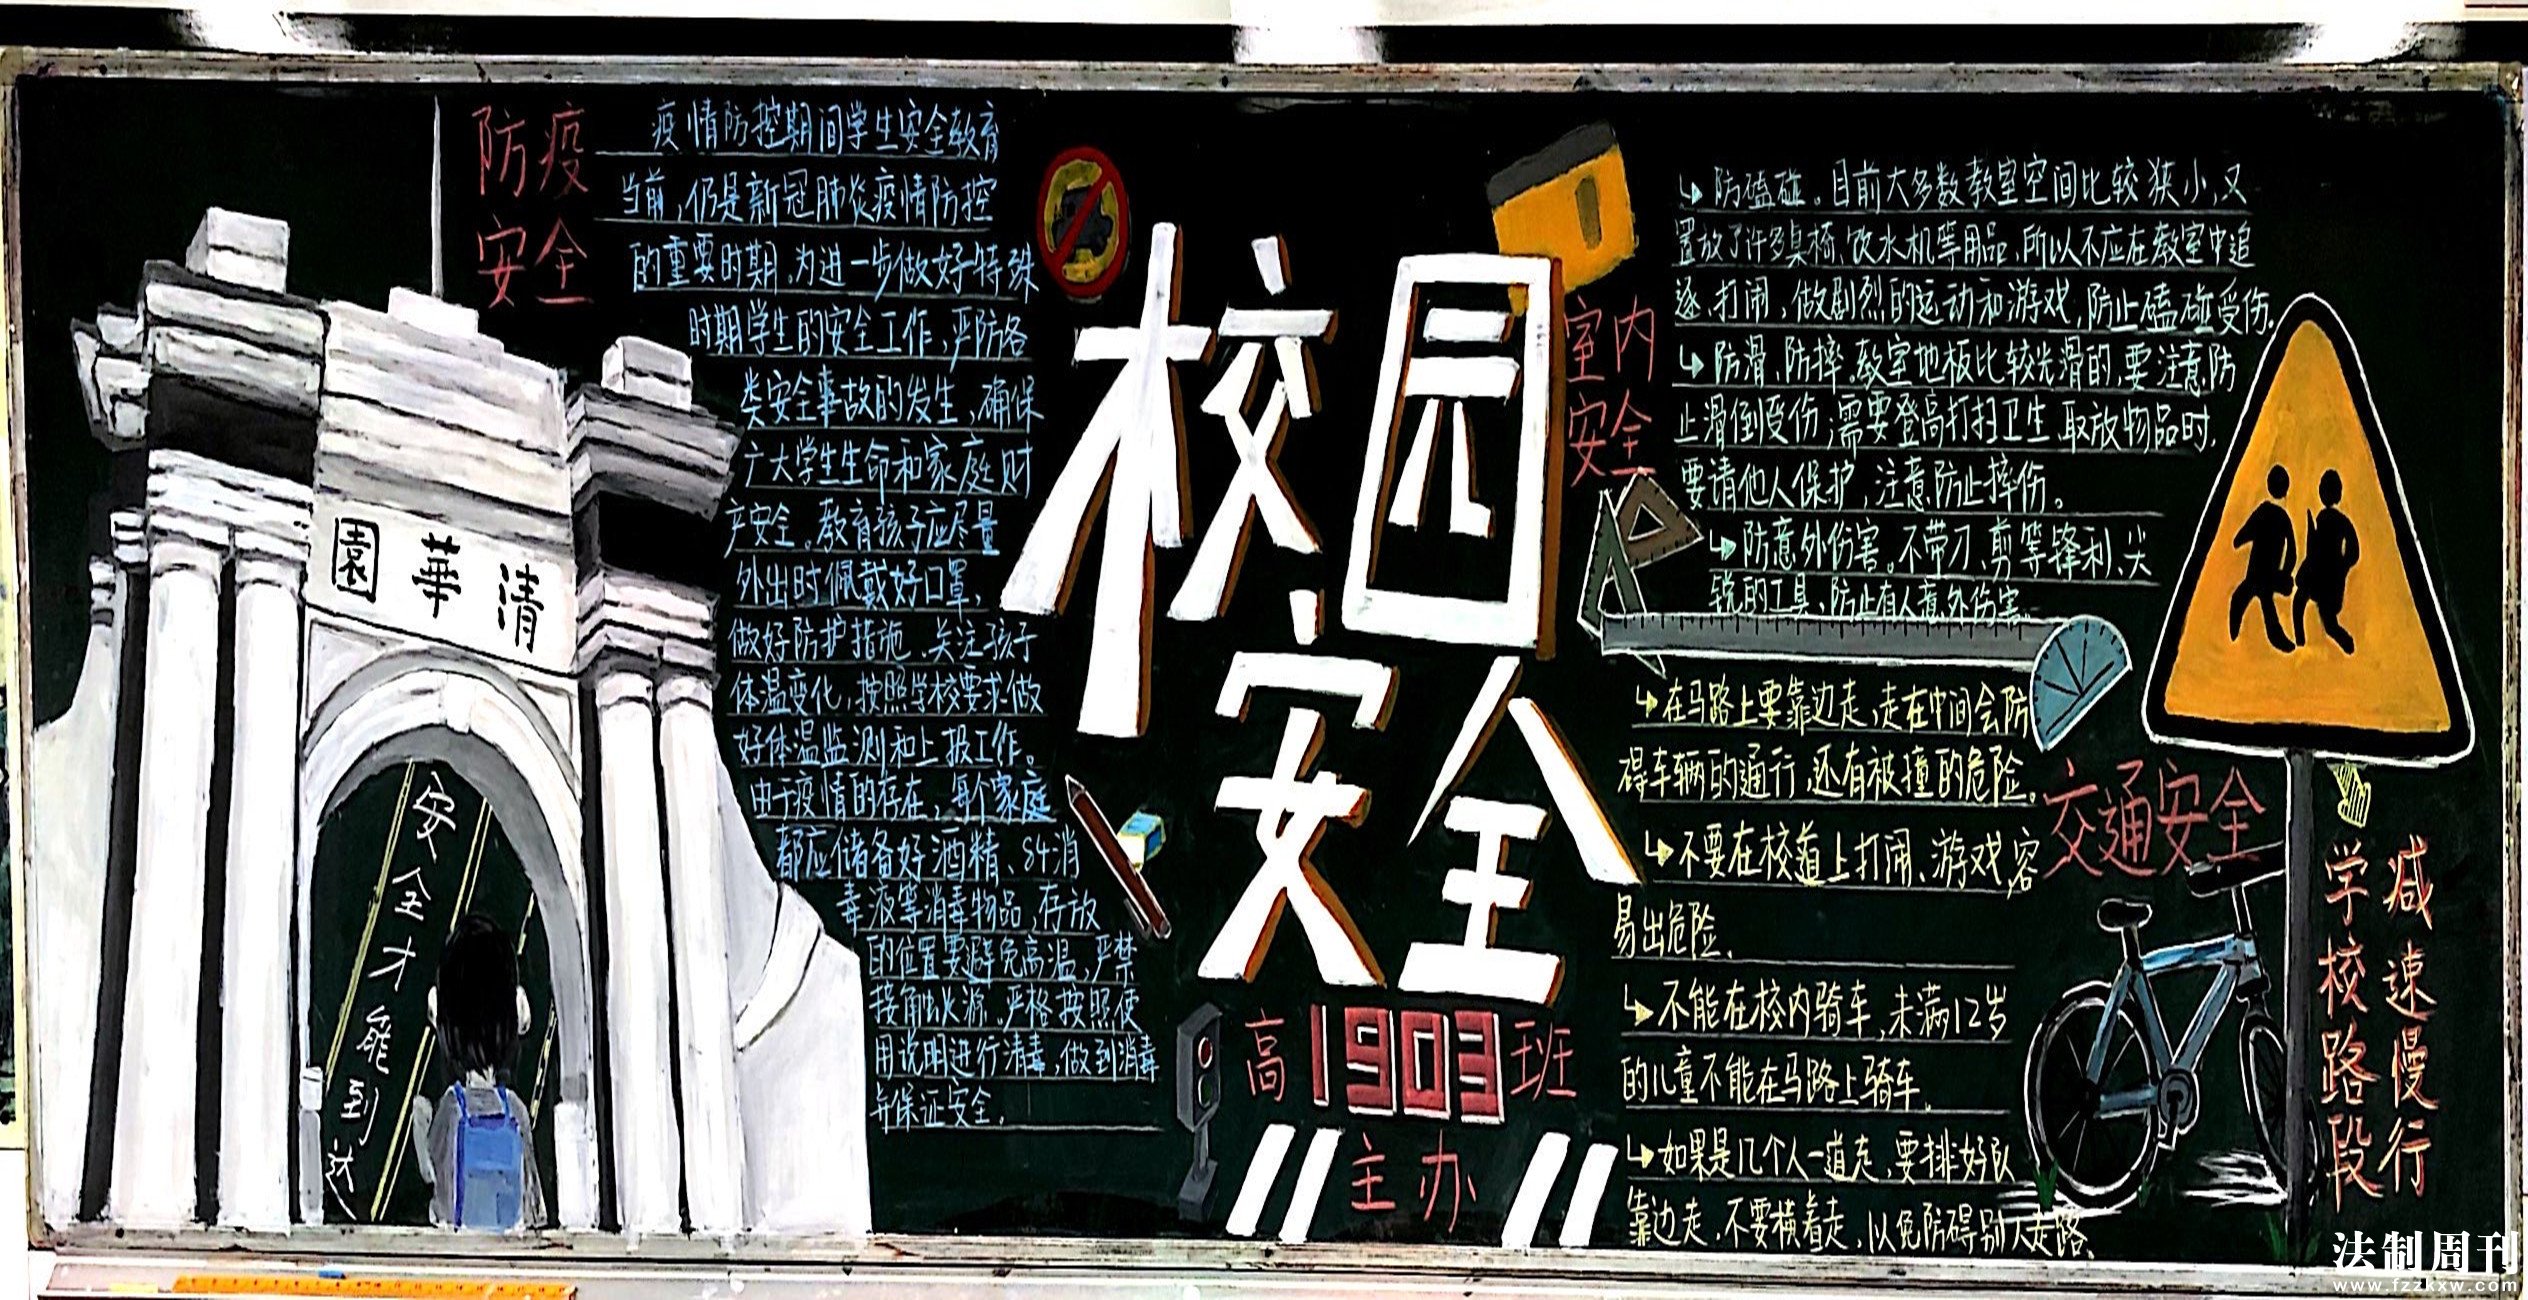 防疫
安全
疫情防控期间学生安全教育
当前，仍是新冠肺炎疫情防控
的重要时期，为进一步做好特殊
时期学生的安全工作，严防各
类安全事故的发生，确保
广大学生生命和家庭财
产安全。教育孩子应尽量
外出时佩戴好口罩，
做好防护措施、关注孩子
体温变化，按照学校要求做
好体温监测和上报工作。
由于疫情的存在，每个家庭
都应储备好酒精、84消
毒液等消毒物品，存放
的位置要避免高温，严禁
接触火源。严格按照使
用说明进行消毒，做到消毒
并保证安全。
園華清
安全才能到达
校园
安全
高1903班
主办
室内
安全
防磕碰。目前大多数教室空间比较狭小，又
置放了许多桌椅、饮水机等用品，所以不应在教室中追
逐、打闹，做剧烈的运动和游戏，防止磕碰受伤。
防滑、防摔。教室地板比较光滑的，要注意防
止滑倒受伤；需要登高打扫卫生、取放物品时，
要请他人保护，注意防止摔伤。
防意外伤害。不带刀、剪等锋利、尖
锐的工具，防止有人意外伤害。
在马路上要靠边走，走在中间会防
碍车辆的通行，还有被撞的危险。
不要在校道上打闹、游戏，容
易出危险。
不能在校内骑车，未满12岁
的儿童不能在马路上骑车。
如果是几个人一道走，要排好队
靠边走，不要横着走，以免防碍别人走路。
交通安全
学校路段
减速慢行
法制周刊
www.fzzkxw.com